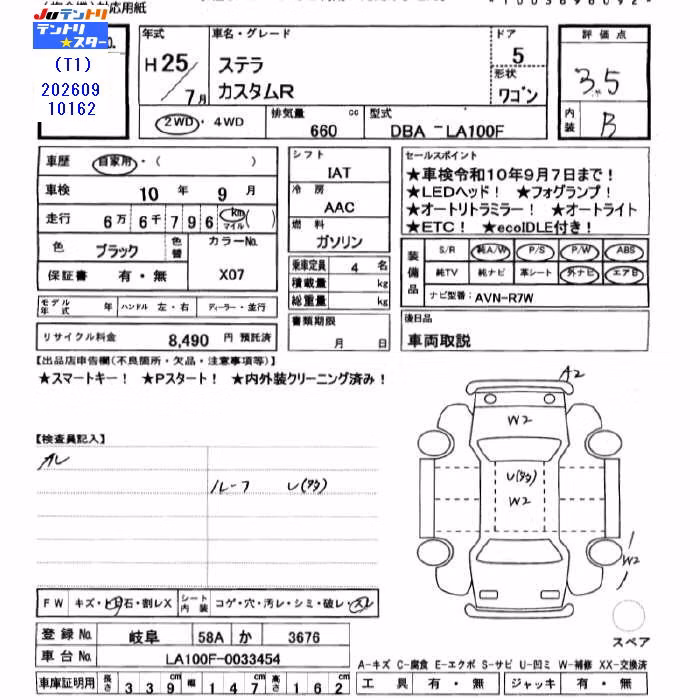 対応用紙
Juテントリ
テントリ★スター
(T1)
202609
10162
年式
H25/7月
車名・グレード
ステラ
カスタムR
ドア
5
形状
ワゴン
評価点
3.5
内装
B
2WD・4WD
排気量
660 cc
型式
DBA -LA100F
車歴 自家用・( )
車検 10年 9月
走行 6万 6千 7 9 6 km マイル ( )
色 ブラック 色替 カラーNo.
保証書 有・無 X07
シフト
IAT
冷房
AAC
燃料
ガソリン
乗車定員 4 名
積載量 kg
総重量 kg
セールスポイント
★車検令和10年9月7日まで!
★LEDヘッド! ★フォグランプ!
★オートリトラミラー! ★オートライト
★ETC! ★ecoIDLE付き!
装備品
S/R 純A/W P/S P/W ABS
純TV 純ナビ 革シート 外ナビ エアB
ナビ型番: AVN-R7W
モデル年式 年 ハンドル 左・右 ディーラー・並行
リサイクル料金 8,490 円 預託済
書類期限
月 日
後日品
車両取説
【出品店申告欄(不良箇所・欠品・注意事項等)】
★スマートキー! ★Pスタート! ★内外装クリーニング済み!
【検査員記入】
スレ
ルーフ
A2
W2
W2
W2
FW キズ・ヒ石・割レX シート内装 コゲ・穴・汚レ・シミ・破レ・スレ
登録No. 岐阜 58A か 3676
車台No. LA100F-0033454
スペア
A-キズ C-腐食 E-エクボ S-サビ U-凹ミ W-補修 XX-交換済
車庫証明用 長さ 339cm 幅 147cm 高さ 162cm
工具 有・無 ジャッキ 有・無